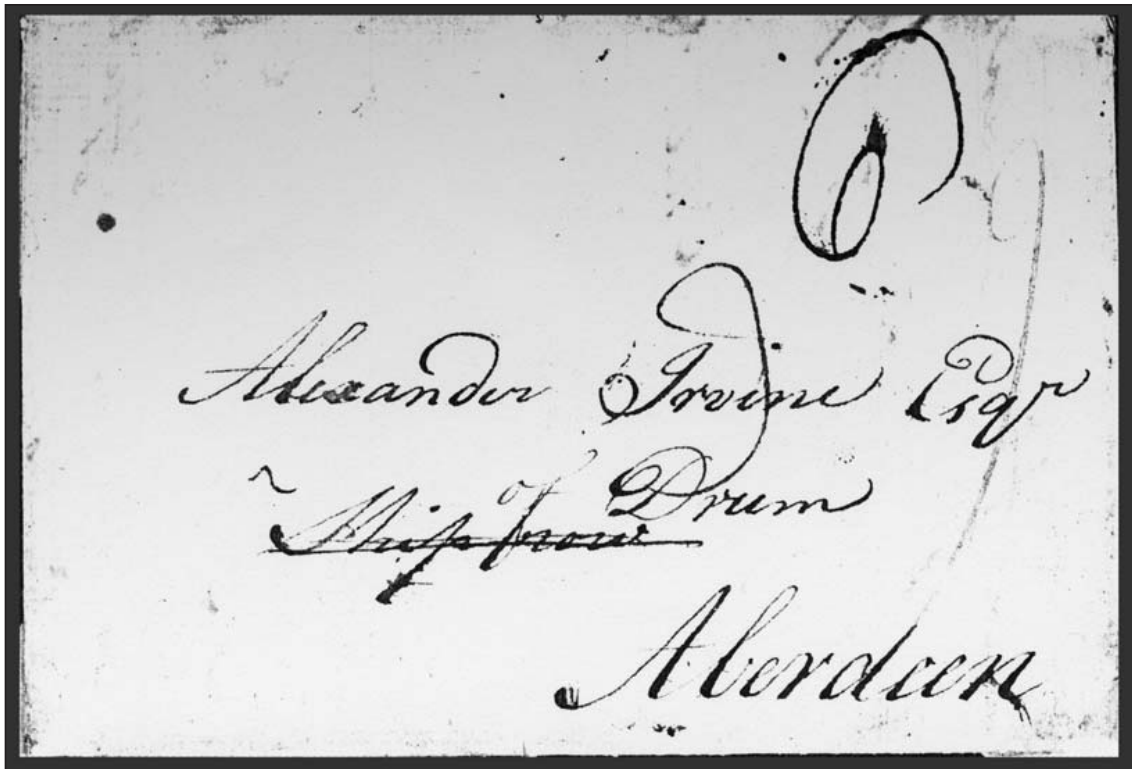 6
Alexander Irvine Esqr
of Drum
Shiprow
Aberdeen